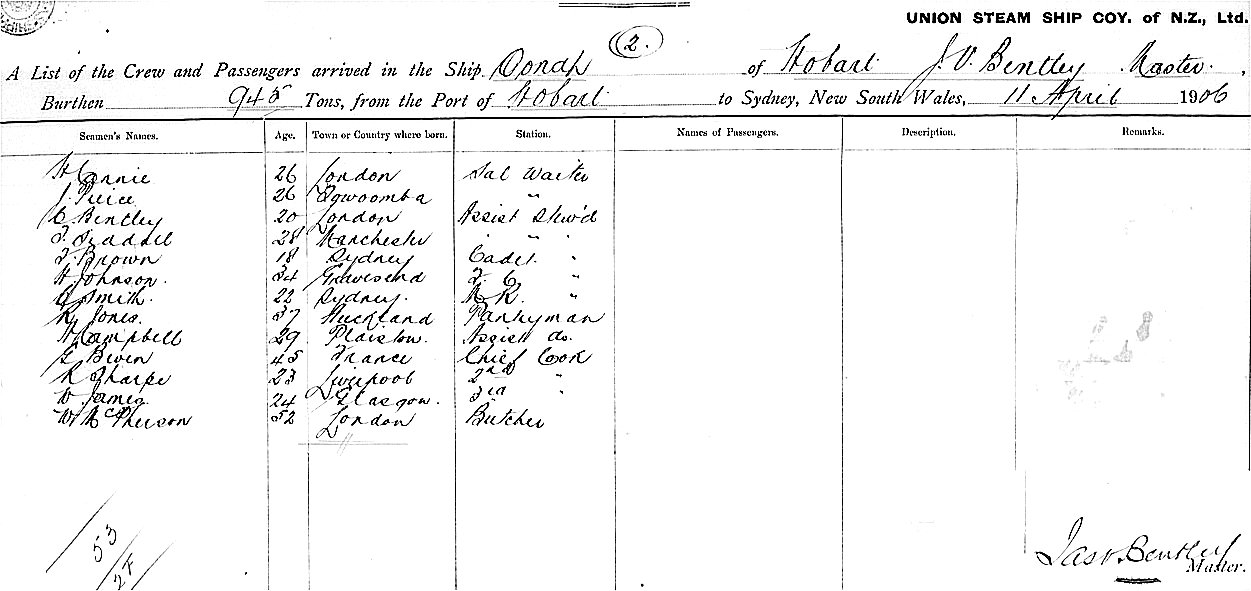 UNION STEAM SHIP COY. of N.Z., Ltd.
(2.)
A List of the Crew and Passengers arrived in the Ship Oonah of Hobart J. V. Bentley Master.
Burthen 945 Tons, from the Port of Hobart to Sydney, New South Wales, 11 April 1906
Seamen's Names. Age. Town or Country where born. Station. Names of Passengers. Description. Remarks.
26 London Sal Waiter
26 "
C. Bentley 20 London Assist Stew'd
28 Manchester " " "
F. Brown 18 Sydney Cadet "
H Johnson. 34 Gravesend "
Smith. 22 Sydney. "
R Jones. 37 Auckland Pantryman
H Campbell 29 Plaistow. Assist do.
45 France Chief Cook
R Sharpe 23 Liverpool 2nd "
James 24 Glasgow. 3rd "
W McPherson 52 London Butcher
53
24
Jas V. Bentley
Master.